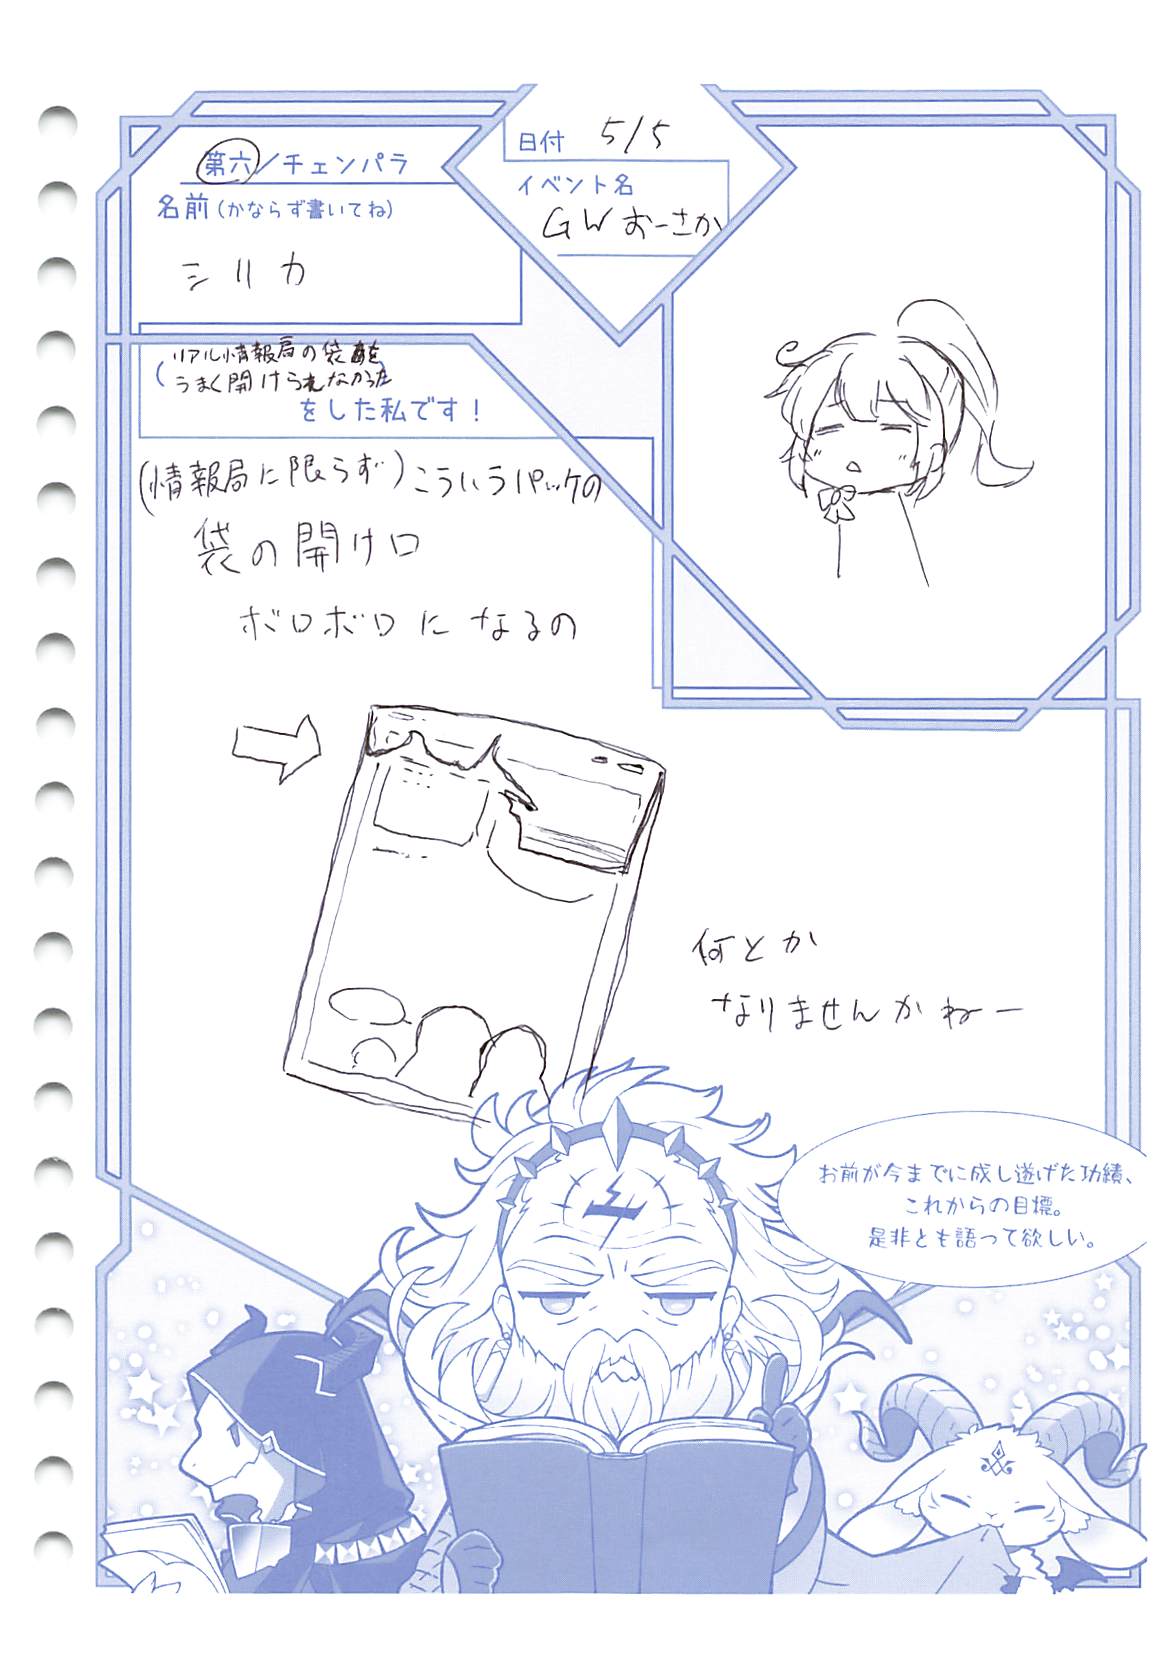 第六/チェンパラ
名前(かならず書いてね)
シリカ
日付 5/5
イベント名
GWおーさか
(リアル情報局の袋を
うまく開けられなかった)
をした私です!
(情報局に限らず)こういうパッケの
袋の開け口
ボロボロになるの
何とか
なりませんかねー
お前が今までに成し遂げた功績、
これからの目標。
是非とも語って欲しい。